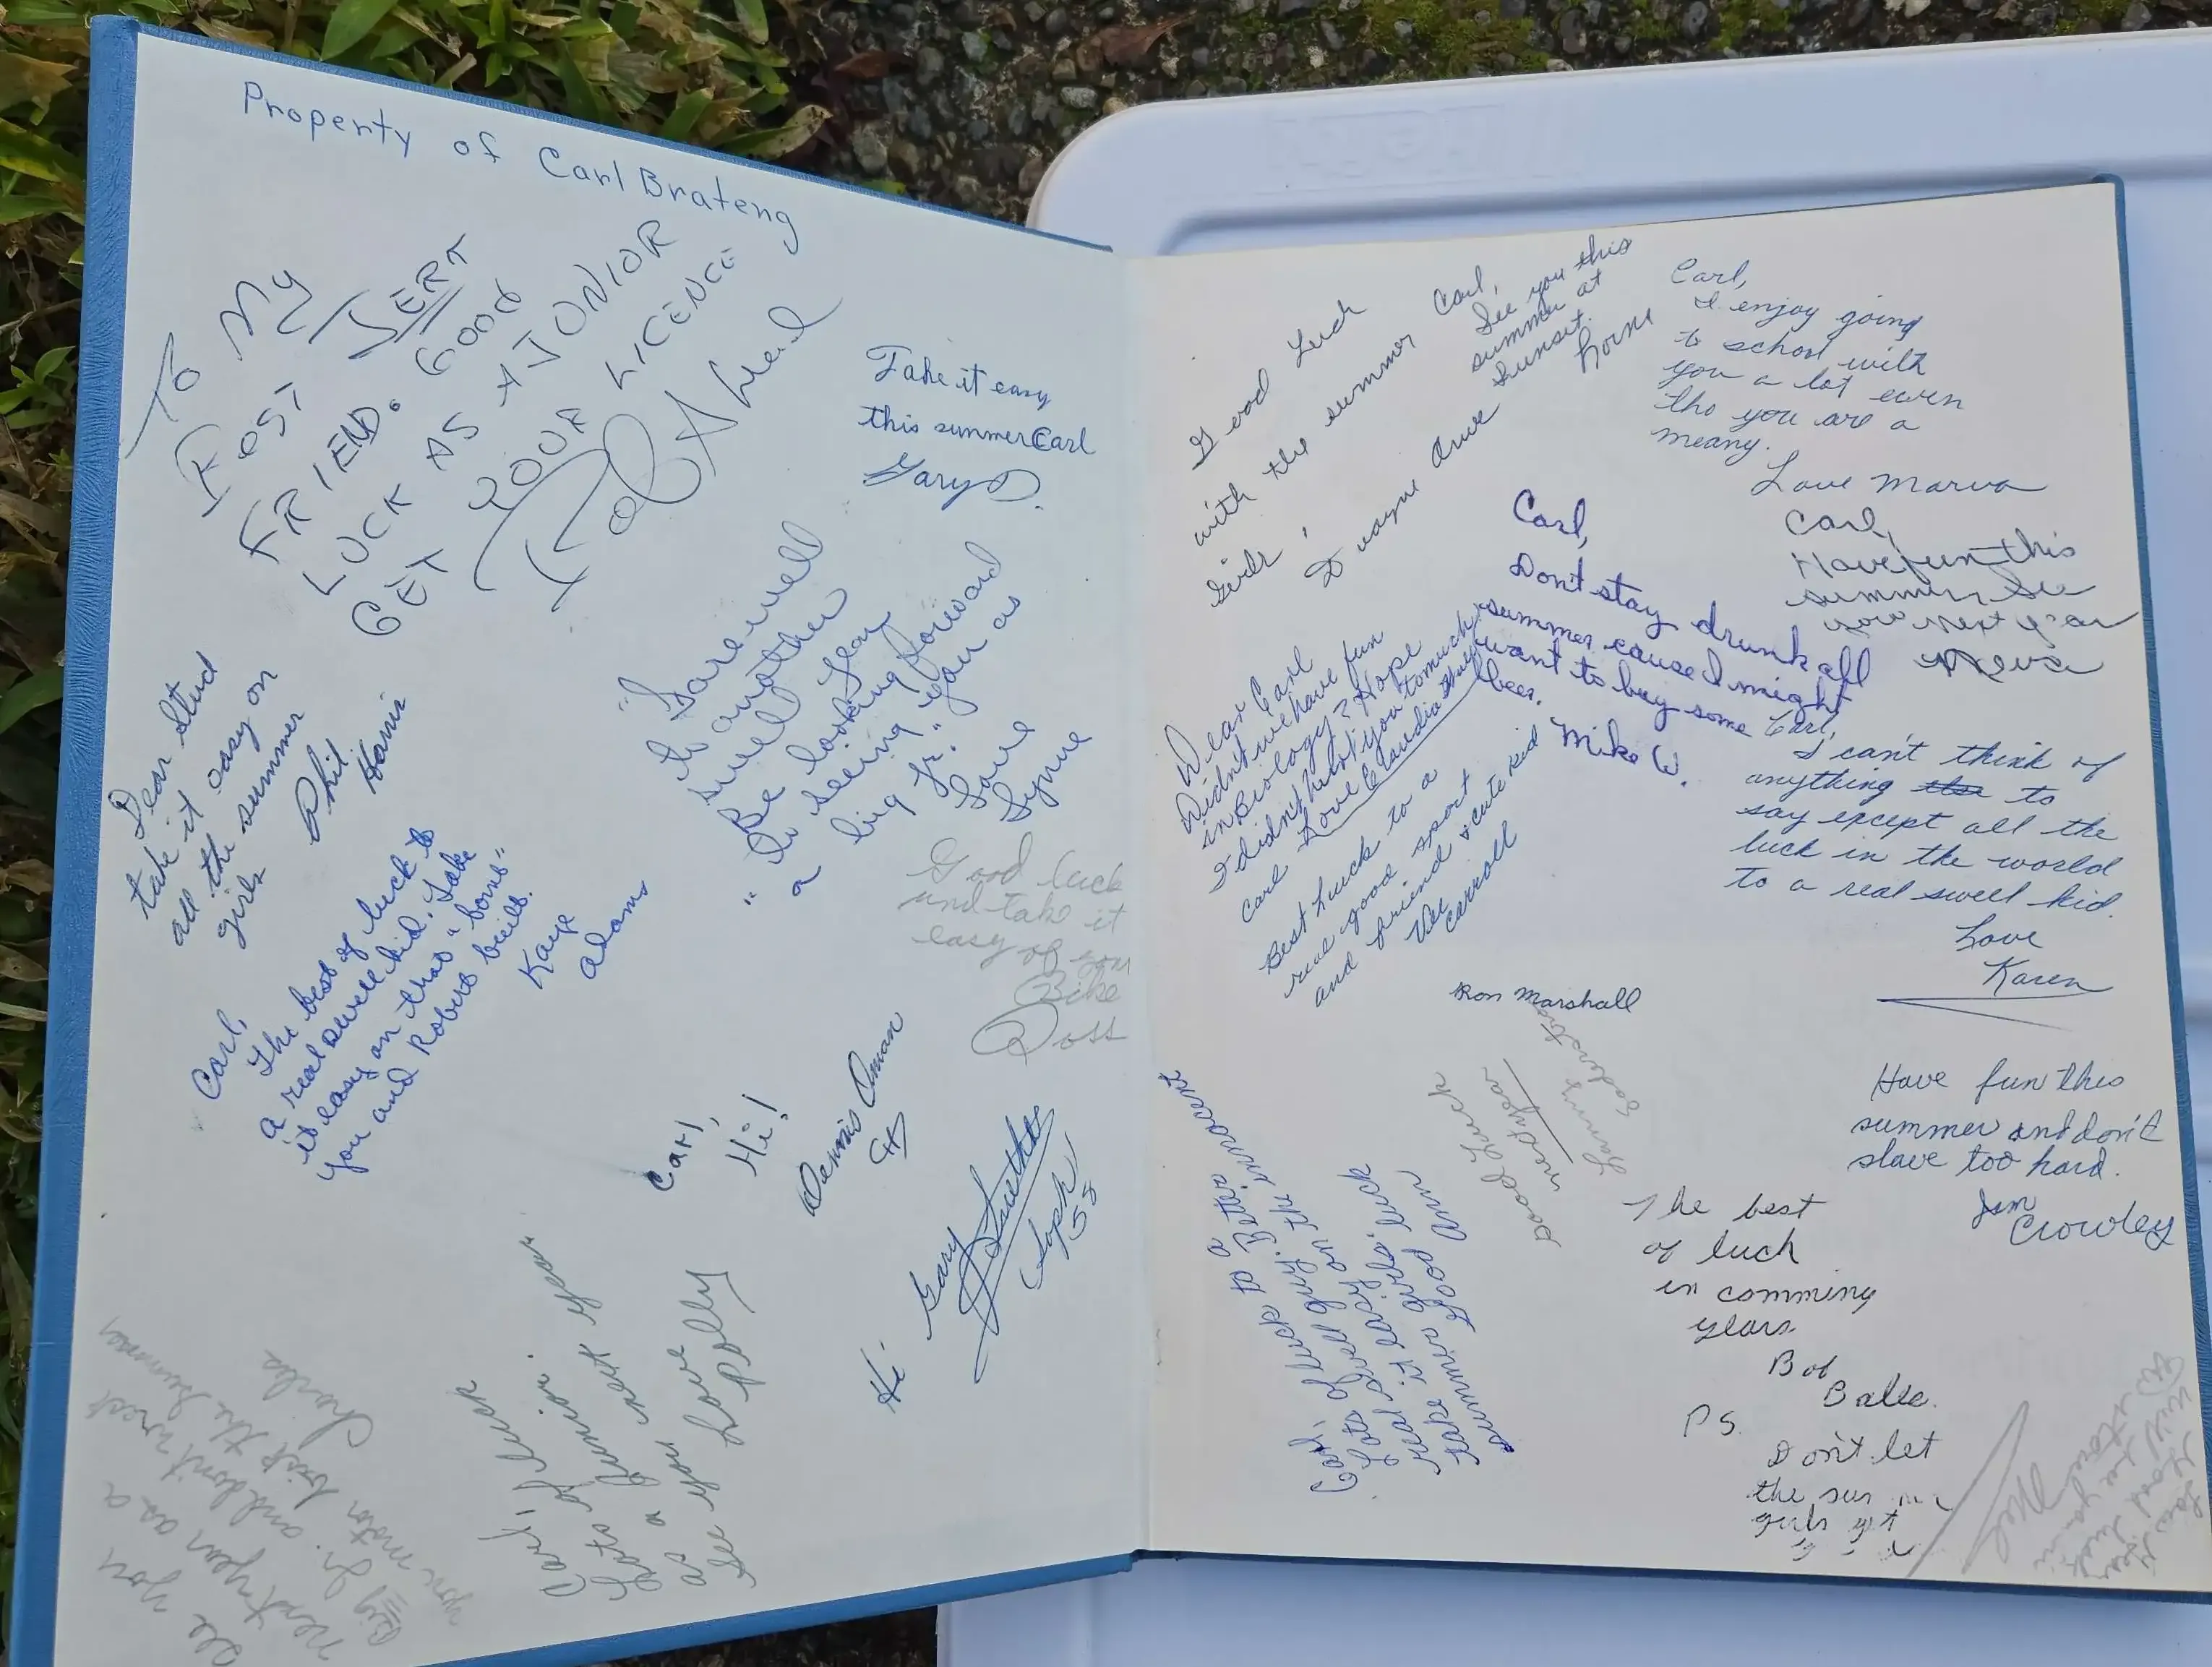 Property of Carl Brateng
To My
FRIEND. GOOD
LUCK AS A JUNIOR
GET YOUR LICENCE
Take it easy
this summer Carl
Gary
Dear Stud
take it easy on
all the summer
girls
Phil
Harris
"Farewell
to another
swell year
Be looking forward
to seeing "you" as
a big Jr."
Love
Lynne
Good luck
and take it
easy of your
Bike
Ross
Carl,
The best of luck to
a real swell kid. Take
it easy on that "bomb"
you and Robert built.
Kaye
Adams
Carl,
Hi!
Dennis Oman
Hi
Gary
Soph
55
Carl,
Lots of luck
as a Junior
next year
See you
Love
Polly
See you
next year as a
Big Jr. and don't wreck
your motor bike this summer
Charles
Good Luck
with the summer
Girls!
Dwayne
Carl,
See you this
summer at
Sunset.
Carl,
I enjoy going
to school with
you a lot even
tho you are a
meany.
Love Marva
Carl,
Don't stay drunk all
summer, cause I might
want to buy some
beer.
Mike W.
Carl,
Have fun this
summer See
you next year
Neva
Dear Carl
Didn't we have fun
in Biology? Hope
I didn't hurt you to much
Carl Love Claudia
Best Luck to a
real good sport
and friend & cute kid
Carroll
Carl,
I can't think of
anything to
say except all the
luck in the world
to a real swell kid.
Love
Karen
Ron Marshall
Good Luck
next year
Larry
Have fun this
summer and don't
slave too hard.
Jim
Crowley
Carl,
Lots of luck to a
real swell guy. Better
take it easy on the innocent
summer girls.
Good luck
Ann
The best
of luck
in comming
years
Bob
Balle.
PS.
Don't let
the sun
girls get
Mel